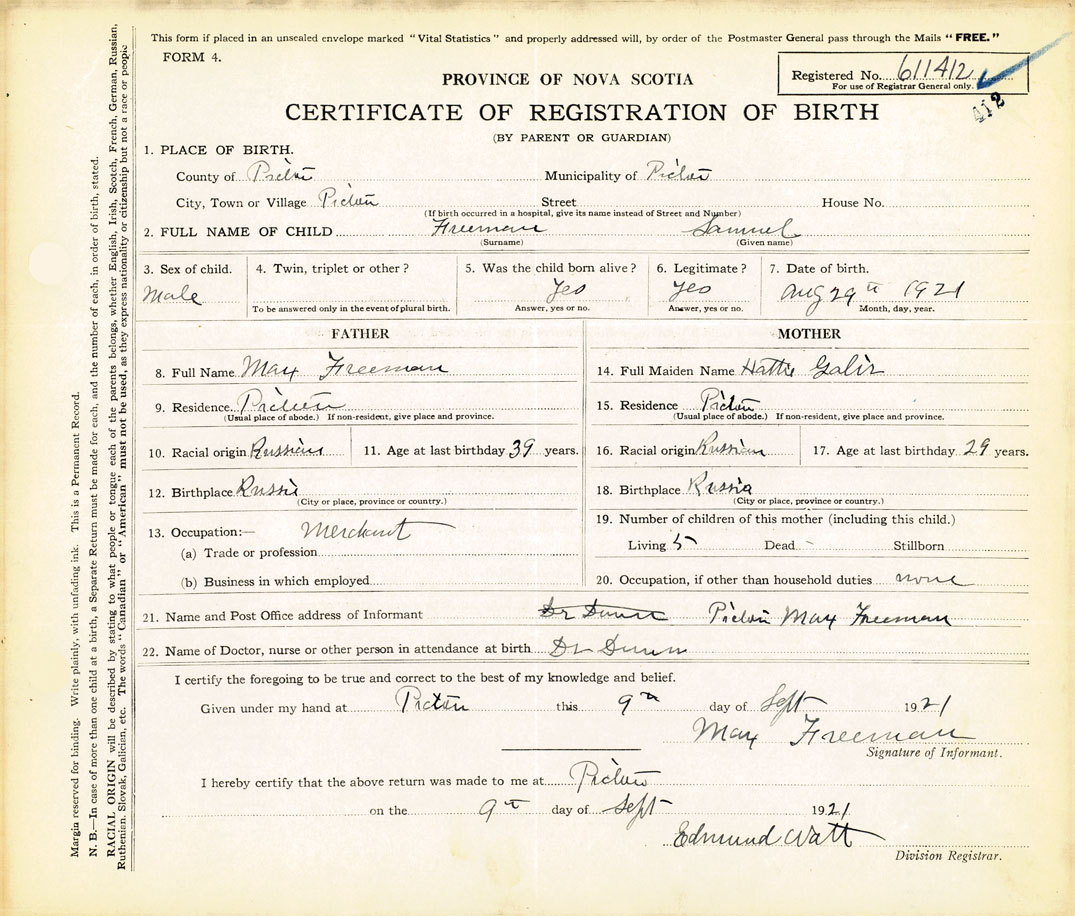 This form if placed in an unsealed envelope marked "Vital Statistics" and properly addressed will, by order of the Postmaster General pass through the Mails "FREE."
FORM 4.
Registered No. 611412
For use of Registrar General only.
412
PROVINCE OF NOVA SCOTIA
CERTIFICATE OF REGISTRATION OF BIRTH
(BY PARENT OR GUARDIAN)
1. PLACE OF BIRTH.
County of Pictou Municipality of Pictou
City, Town or Village Pictou Street House No.
(If birth occurred in a hospital, give its name instead of Street and Number)
2. FULL NAME OF CHILD Freeman Samuel
(Surname) (Given name)
3. Sex of child. 4. Twin, triplet or other? 5. Was the child born alive? 6. Legitimate? 7. Date of birth.
Male Yes Yes Aug 29th 1921
To be answered only in the event of plural birth. Answer, yes or no. Answer, yes or no. Month, day, year.
FATHER MOTHER
8. Full Name Max Freeman 14. Full Maiden Name Hattie
9. Residence Pictou 15. Residence Pictou
(Usual place of abode.) If non-resident, give place and province. (Usual place of abode.) If non-resident, give place and province.
10. Racial origin Russian 11. Age at last birthday 39 years. 16. Racial origin Russian 17. Age at last birthday 29 years.
12. Birthplace Russia 18. Birthplace Russia
(City or place, province or country.) (City or place, province or country.)
13. Occupation:— Merchant 19. Number of children of this mother (including this child.)
(a) Trade or profession Living 5 Dead - Stillborn
(b) Business in which employed 20. Occupation, if other than household duties none
21. Name and Post Office address of Informant Dr Dunn Pictou Max Freeman
22. Name of Doctor, nurse or other person in attendance at birth Dr Dunn
I certify the foregoing to be true and correct to the best of my knowledge and belief.
Given under my hand at Pictou this 9th day of Sept 1921
Max Freeman
Signature of Informant.
I hereby certify that the above return was made to me at Pictou
on the 9th day of Sept 1921
Edmund Watt
Division Registrar.
Margin reserved for binding. Write plainly, with unfading ink. This is a Permanent Record.
N. B.—In case of more than one child at a birth, a Separate Return must be made for each, and the number of each, in order of birth, stated.
RACIAL ORIGIN will be described by stating to what people or tongue each of the parents belongs, whether English, Irish, Scotch, French, German, Russian,
Ruthenian, Slovak, Galician, etc. The words "Canadian" or "American" must not be used, as they express nationality or citizenship but not a race or people